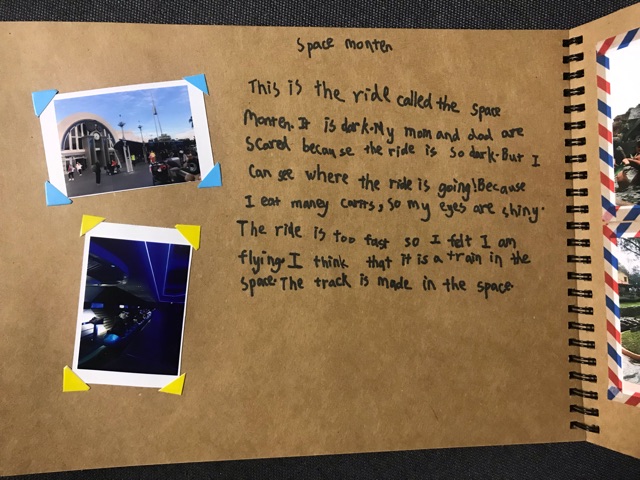 Space monten
This is the ride called the space
Monten. It is dark. My mom and dad are
scared because the ride is so dark. But I
can see where the ride is going! Because
I eat maney carrts, so my eyes are shiny.
The ride is too fast so I felt I am
flying. I think that it is a train in the
space. The track is made in the space.